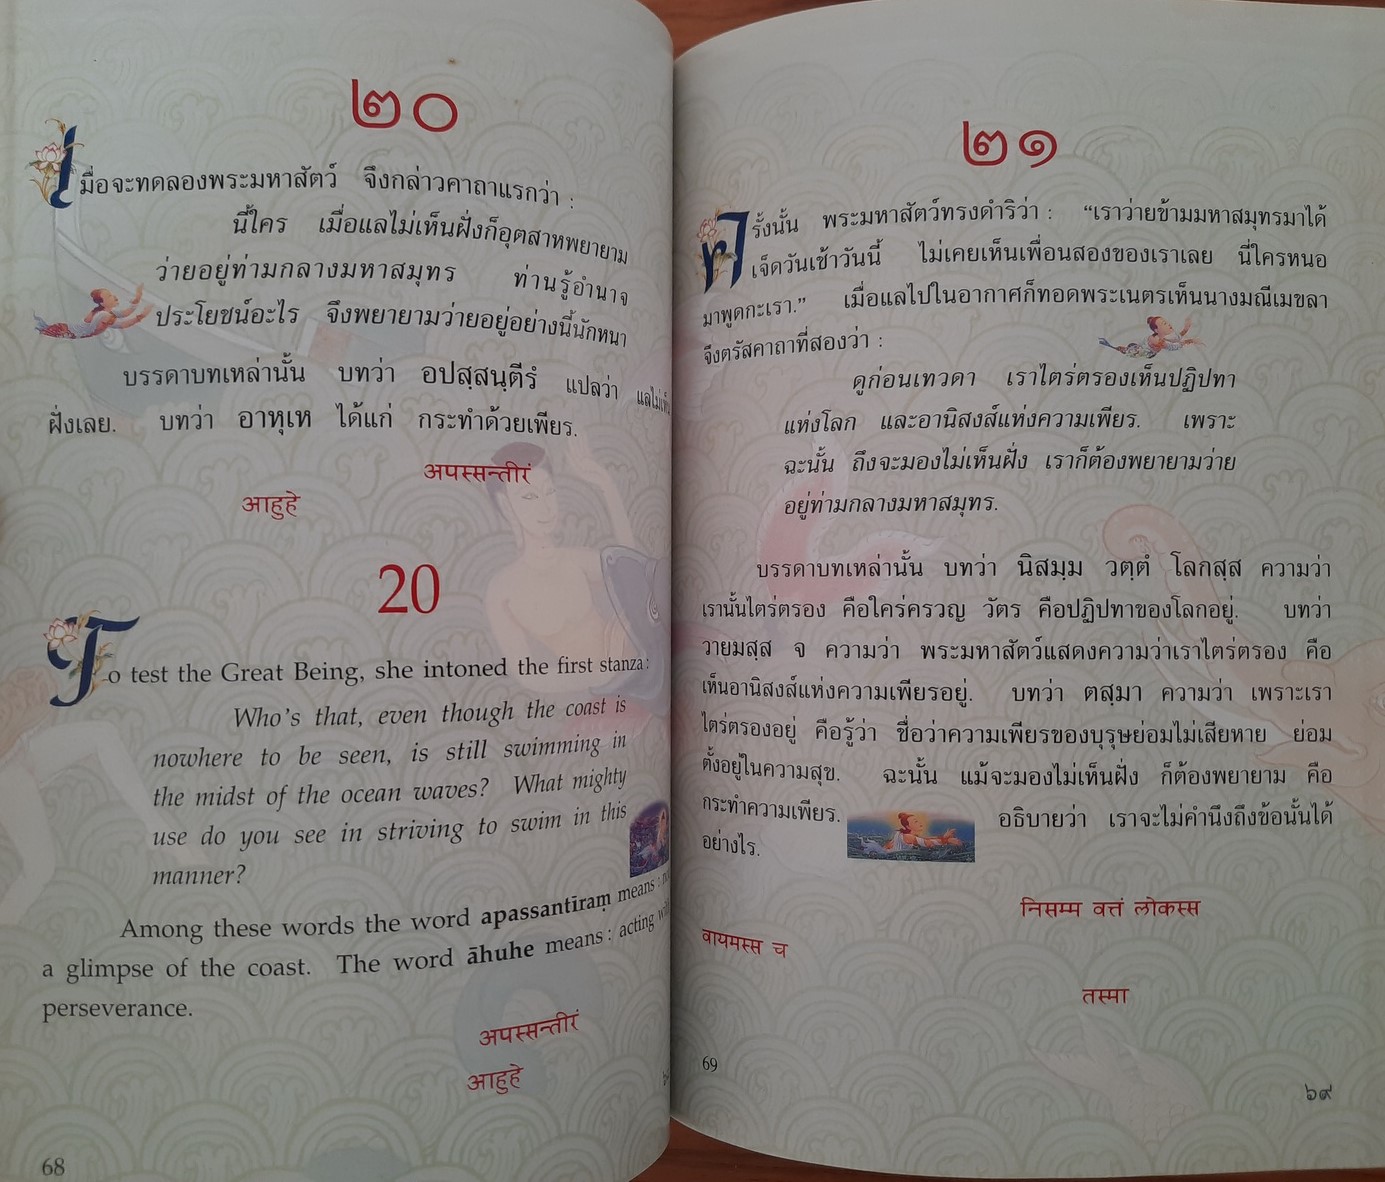 ๒๐
เมื่อจะทดลองพระมหาสัตว์ จึงกล่าวคาถาแรกว่า :
นี้ใคร เมื่อแลไม่เห็นฝั่งก็อุตสาหพยายาม
ว่ายอยู่ท่ามกลางมหาสมุทร ท่านรู้อำนาจ
ประโยชน์อะไร จึงพยายามว่ายอยู่อย่างนี้นักหนา
บรรดาบทเหล่านั้น บทว่า อปสฺสนฺตีรํ แปลว่า แลไม่เห็น
ฝั่งเลย. บทว่า อาหุเห ได้แก่ กระทำด้วยเพียร.
अपस्सन्तीरं
आहुहे
20
To test the Great Being, she intoned the first stanza :
Who's that, even though the coast is
nowhere to be seen, is still swimming in
the midst of the ocean waves? What mighty
use do you see in striving to swim in this
manner?
Among these words the word apassantīraṃ means :
a glimpse of the coast. The word āhuhe means : acting
perseverance.
अपस्सन्तीरं
आहुहे
68
๒๑
ครั้งนั้น พระมหาสัตว์ทรงดำริว่า : “เราว่ายข้ามมหาสมุทรมาได้
เจ็ดวันเช้าวันนี้ ไม่เคยเห็นเพื่อนสองของเราเลย นี่ใครหนอ
มาพูดกะเรา.” เมื่อแลไปในอากาศก็ทอดพระเนตรเห็นนางมณีเมขลา
จึงตรัสคาถาที่สองว่า :
ดูก่อนเทวดา เราไตร่ตรองเห็นปฏิปทา
แห่งโลก และอานิสงส์แห่งความเพียร. เพราะ
ฉะนั้น ถึงจะมองไม่เห็นฝั่ง เราก็ต้องพยายามว่าย
อยู่ท่ามกลางมหาสมุทร.
บรรดาบทเหล่านั้น บทว่า นิสมฺม วตฺตํ โลกสฺส ความว่า
เรานั้นไตร่ตรอง คือใคร่ครวญ วัตร คือปฏิปทาของโลกอยู่. บทว่า
วายมสฺส จ ความว่า พระมหาสัตว์แสดงความว่าเราไตร่ตรอง คือ
เห็นอานิสงส์แห่งความเพียรอยู่. บทว่า ตสฺมา ความว่า เพราะเรา
ไตร่ตรองอยู่ คือรู้ว่า ชื่อว่าความเพียรของบุรุษย่อมไม่เสียหาย ย่อม
ตั้งอยู่ในความสุข. ฉะนั้น แม้จะมองไม่เห็นฝั่ง ก็ต้องพยายาม คือ
กระทำความเพียร. อธิบายว่า เราจะไม่คำนึงถึงข้อนั้นได้
อย่างไร.
निसम्म वत्तं लोकस्स
वायमस्स च
तस्मा
69
๖๙